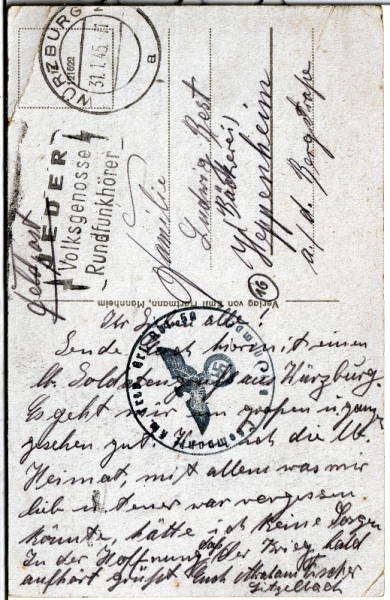 WÜRZBURG
31.1.45
a
JEDER
Volksgenosse
Rundfunkhörer
Feldpost
Familie
Ludwig Best
(Bäckerei)
Heppenheim
a/d. Bergstraße
(16)
Verlag von Emil Hartmann, Mannheim
Ihr Lieben alle!
Sende Euch hiermit einen
lb. Soldatengruß aus Würzburg
Es geht mir im großen u. ganz
gesehen gut. Wenn ich die lb.
Heimat, mit allem was mir
lieb u. teuer war vergessen
könnte, hätte ich keine Sorgen
In der Hoffnung daß der Krieg bald
aufhört grüßt Euch Fischer
Litzelbach